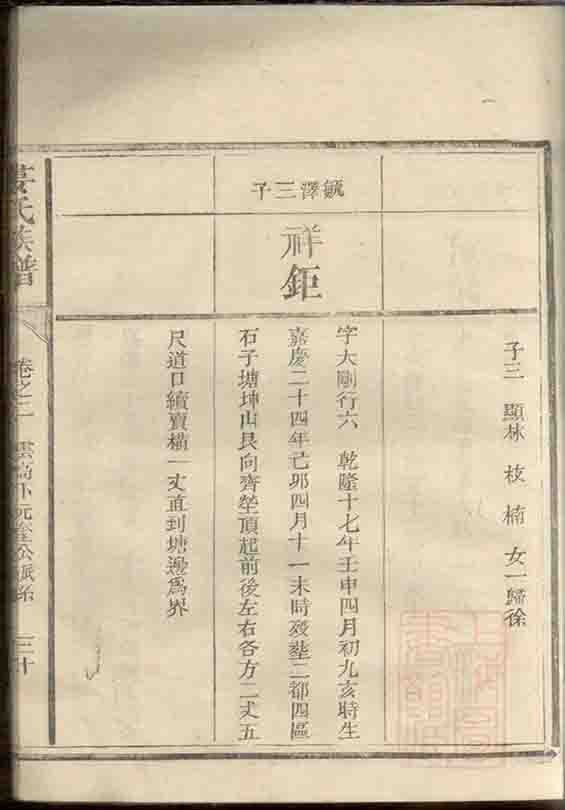 子三 顯林 枝 楠 女一歸徐
毓澤三子
祥鉅
字大剛行六 乾隆十七年壬申四月初九亥時生
嘉慶二十四年己卯四月十一未時歿塟二都四區
石子塘坤山艮向齊塋頂起前後左右各方二丈五
尺道口續賣橫一丈直到塘邊為界
氏族譜
卷之二 雲 公 系 三十